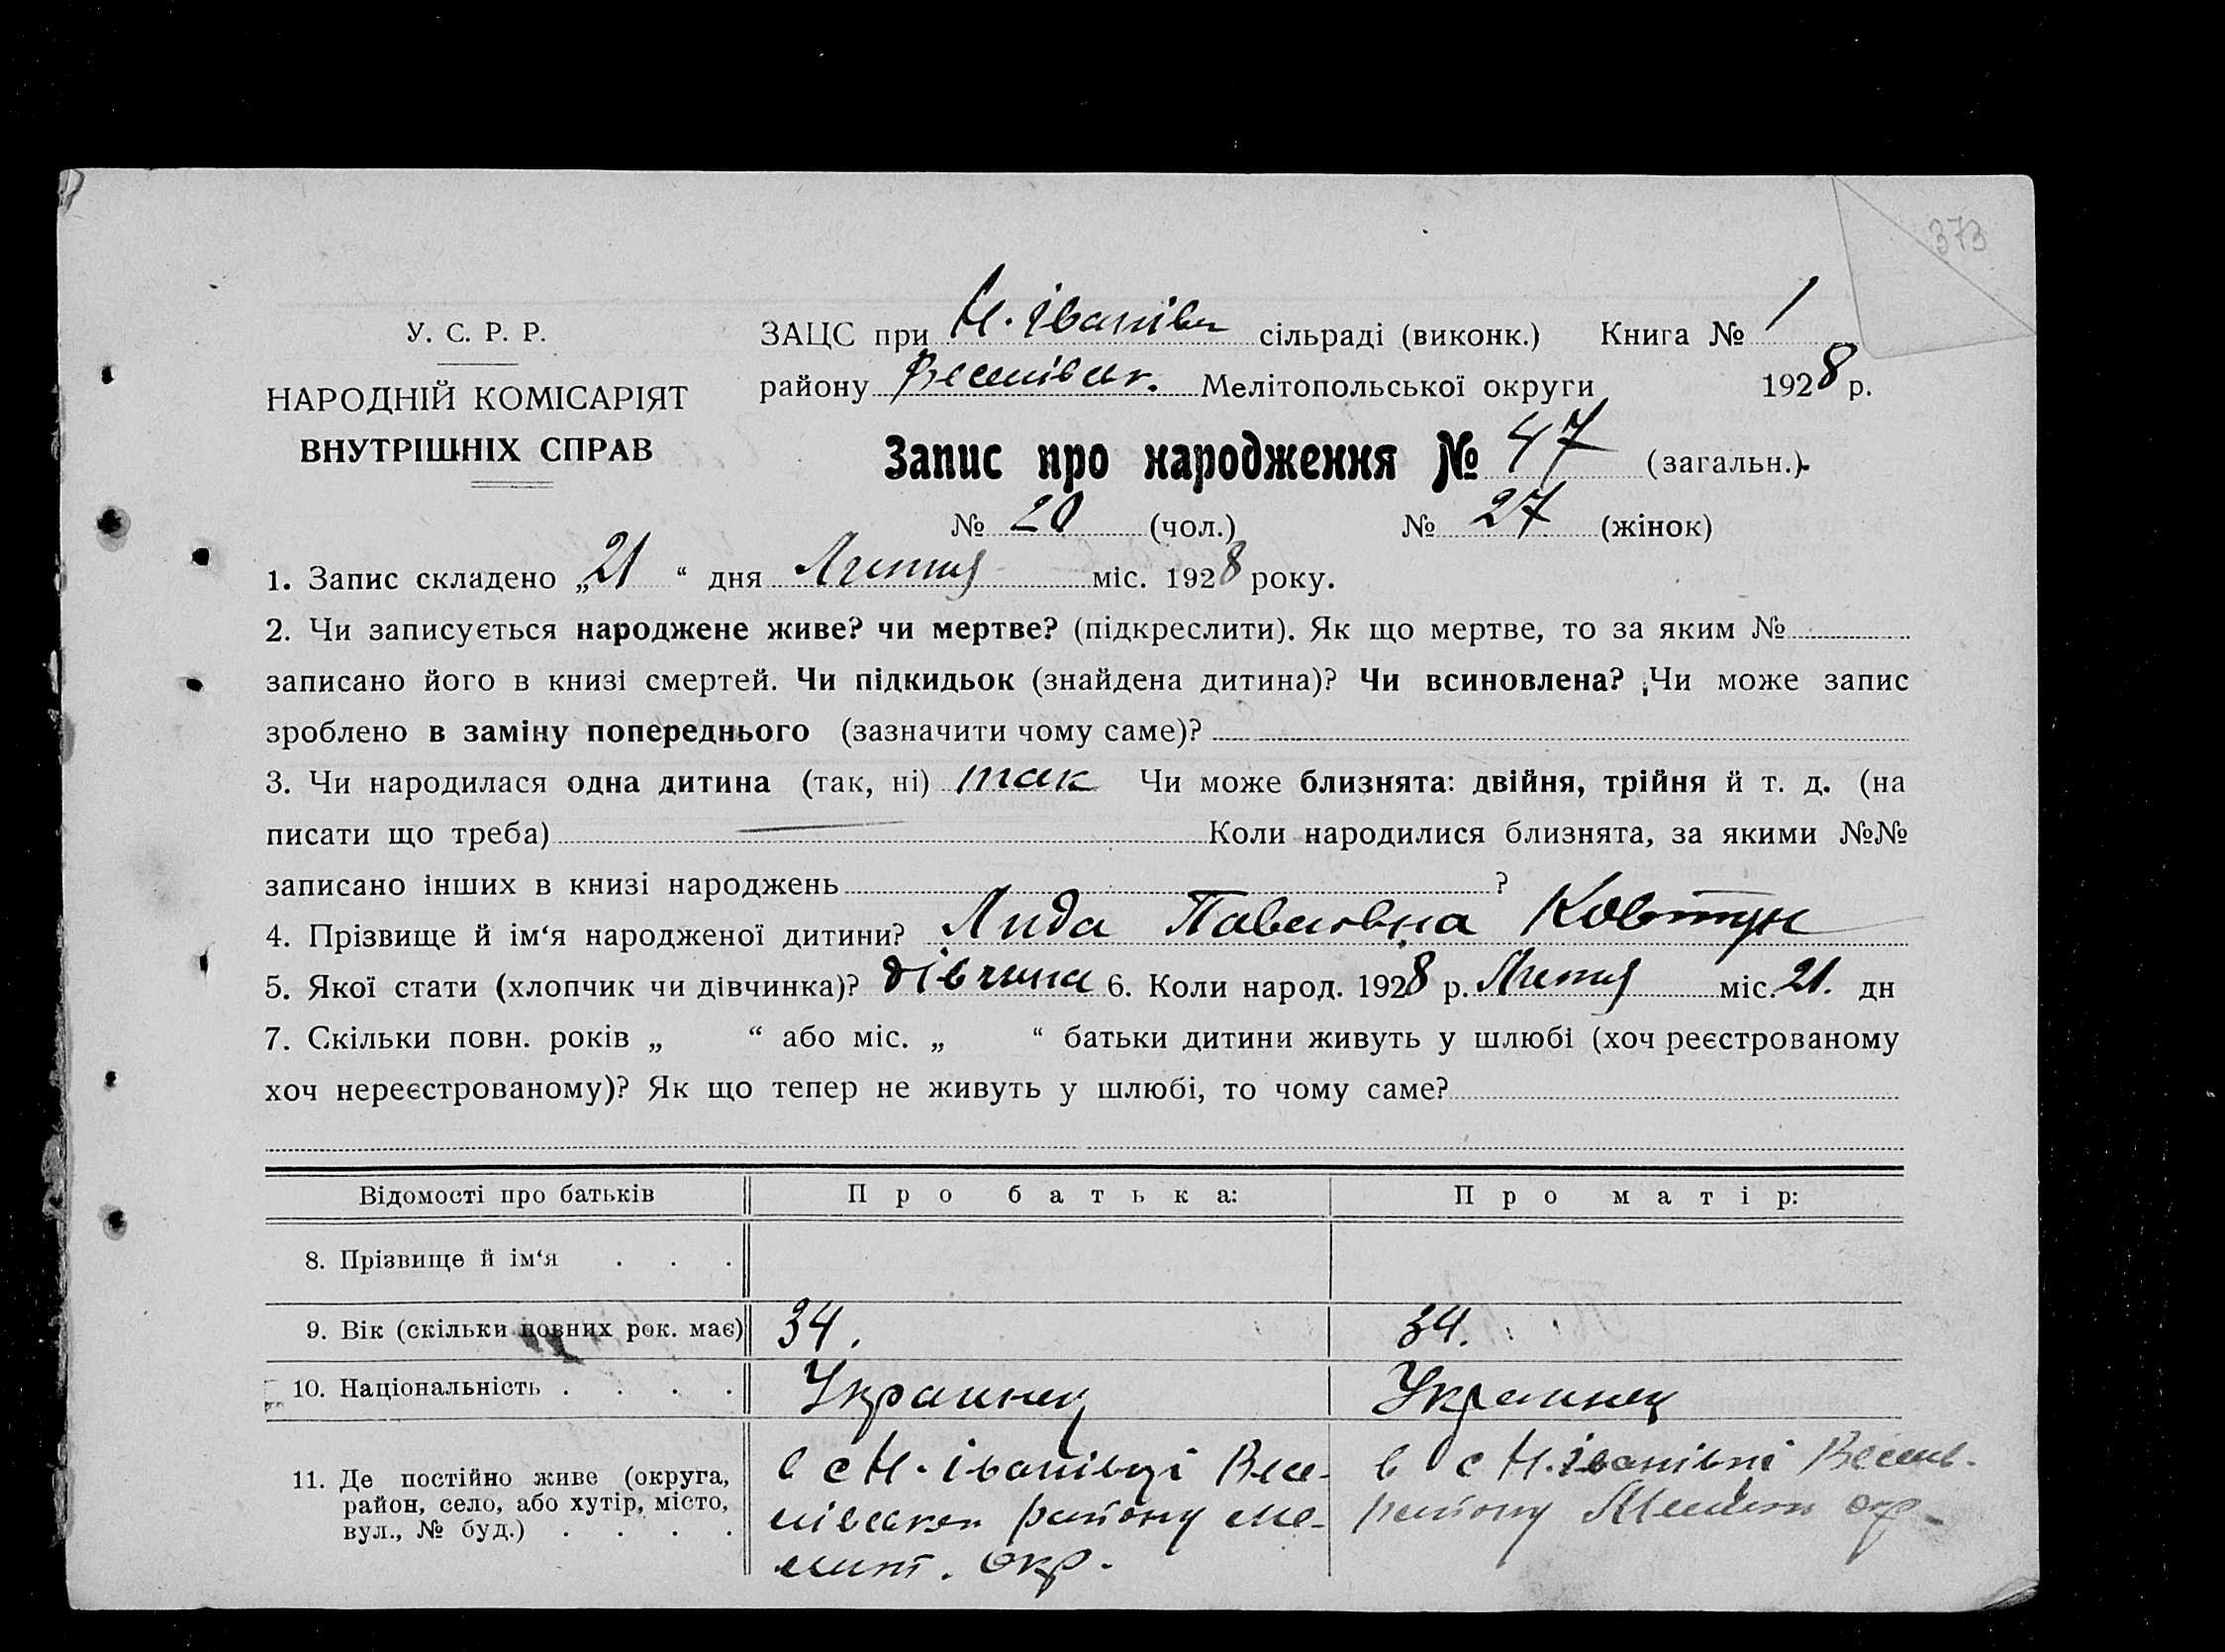 373
У. С. Р. Р.
НАРОДНІЙ КОМІСАРІЯТ
ВНУТРІШНІХ СПРАВ
ЗАЦС при Н. Іванівц сільраді (виконк.) Книга № 1
району Веселівськ. Мелітопольської округи 1928 р.
Запис про народження № 47 (загальн.)
№ 20 (чол.) № 27 (жінок)
1. Запис складено „21“ дня Липня міс. 1928 року.
2. Чи записується народжене живе? чи мертве? (підкреслити). Як що мертве, то за яким №
записано його в книзі смертей. Чи підкидьок (знайдена дитина)? Чи всиновлена? Чи може запис
зроблено в заміну попереднього (зазначити чому саме)?
3. Чи народилася одна дитина (так, ні) так Чи може близнята: двійня, трійня й т. д. (на
писати що треба) — Коли народилися близнята, за якими №№
записано інших в книзі народжень ?
4. Прізвище й ім‘я народженої дитини? Лида Павловна Ковтун
5. Якої стати (хлопчик чи дівчинка)? дівчина 6. Коли народ. 1928 р. Липня міс. 21. дн
7. Скільки повн. років „ “ або міс. „ “ батьки дитини живуть у шлюбі (хоч реєстрованому
хоч нереєстрованому)? Як що тепер не живуть у шлюбі, то чому саме?
Відомості про батьків Про батька: Про матір:
8. Прізвище й ім‘я . . .
9. Вік (скільки повних рок. має) 34. 34.
10. Національність . . . . Украинец Украинец
11. Де постійно живе (округа, в с Н. іванівці Весе- в с Н. іванівні Веселів.
район, село, або хутір, місто, лівském району Ме- району Мелит окр-
вул., № буд.) . . . . лит. окр.